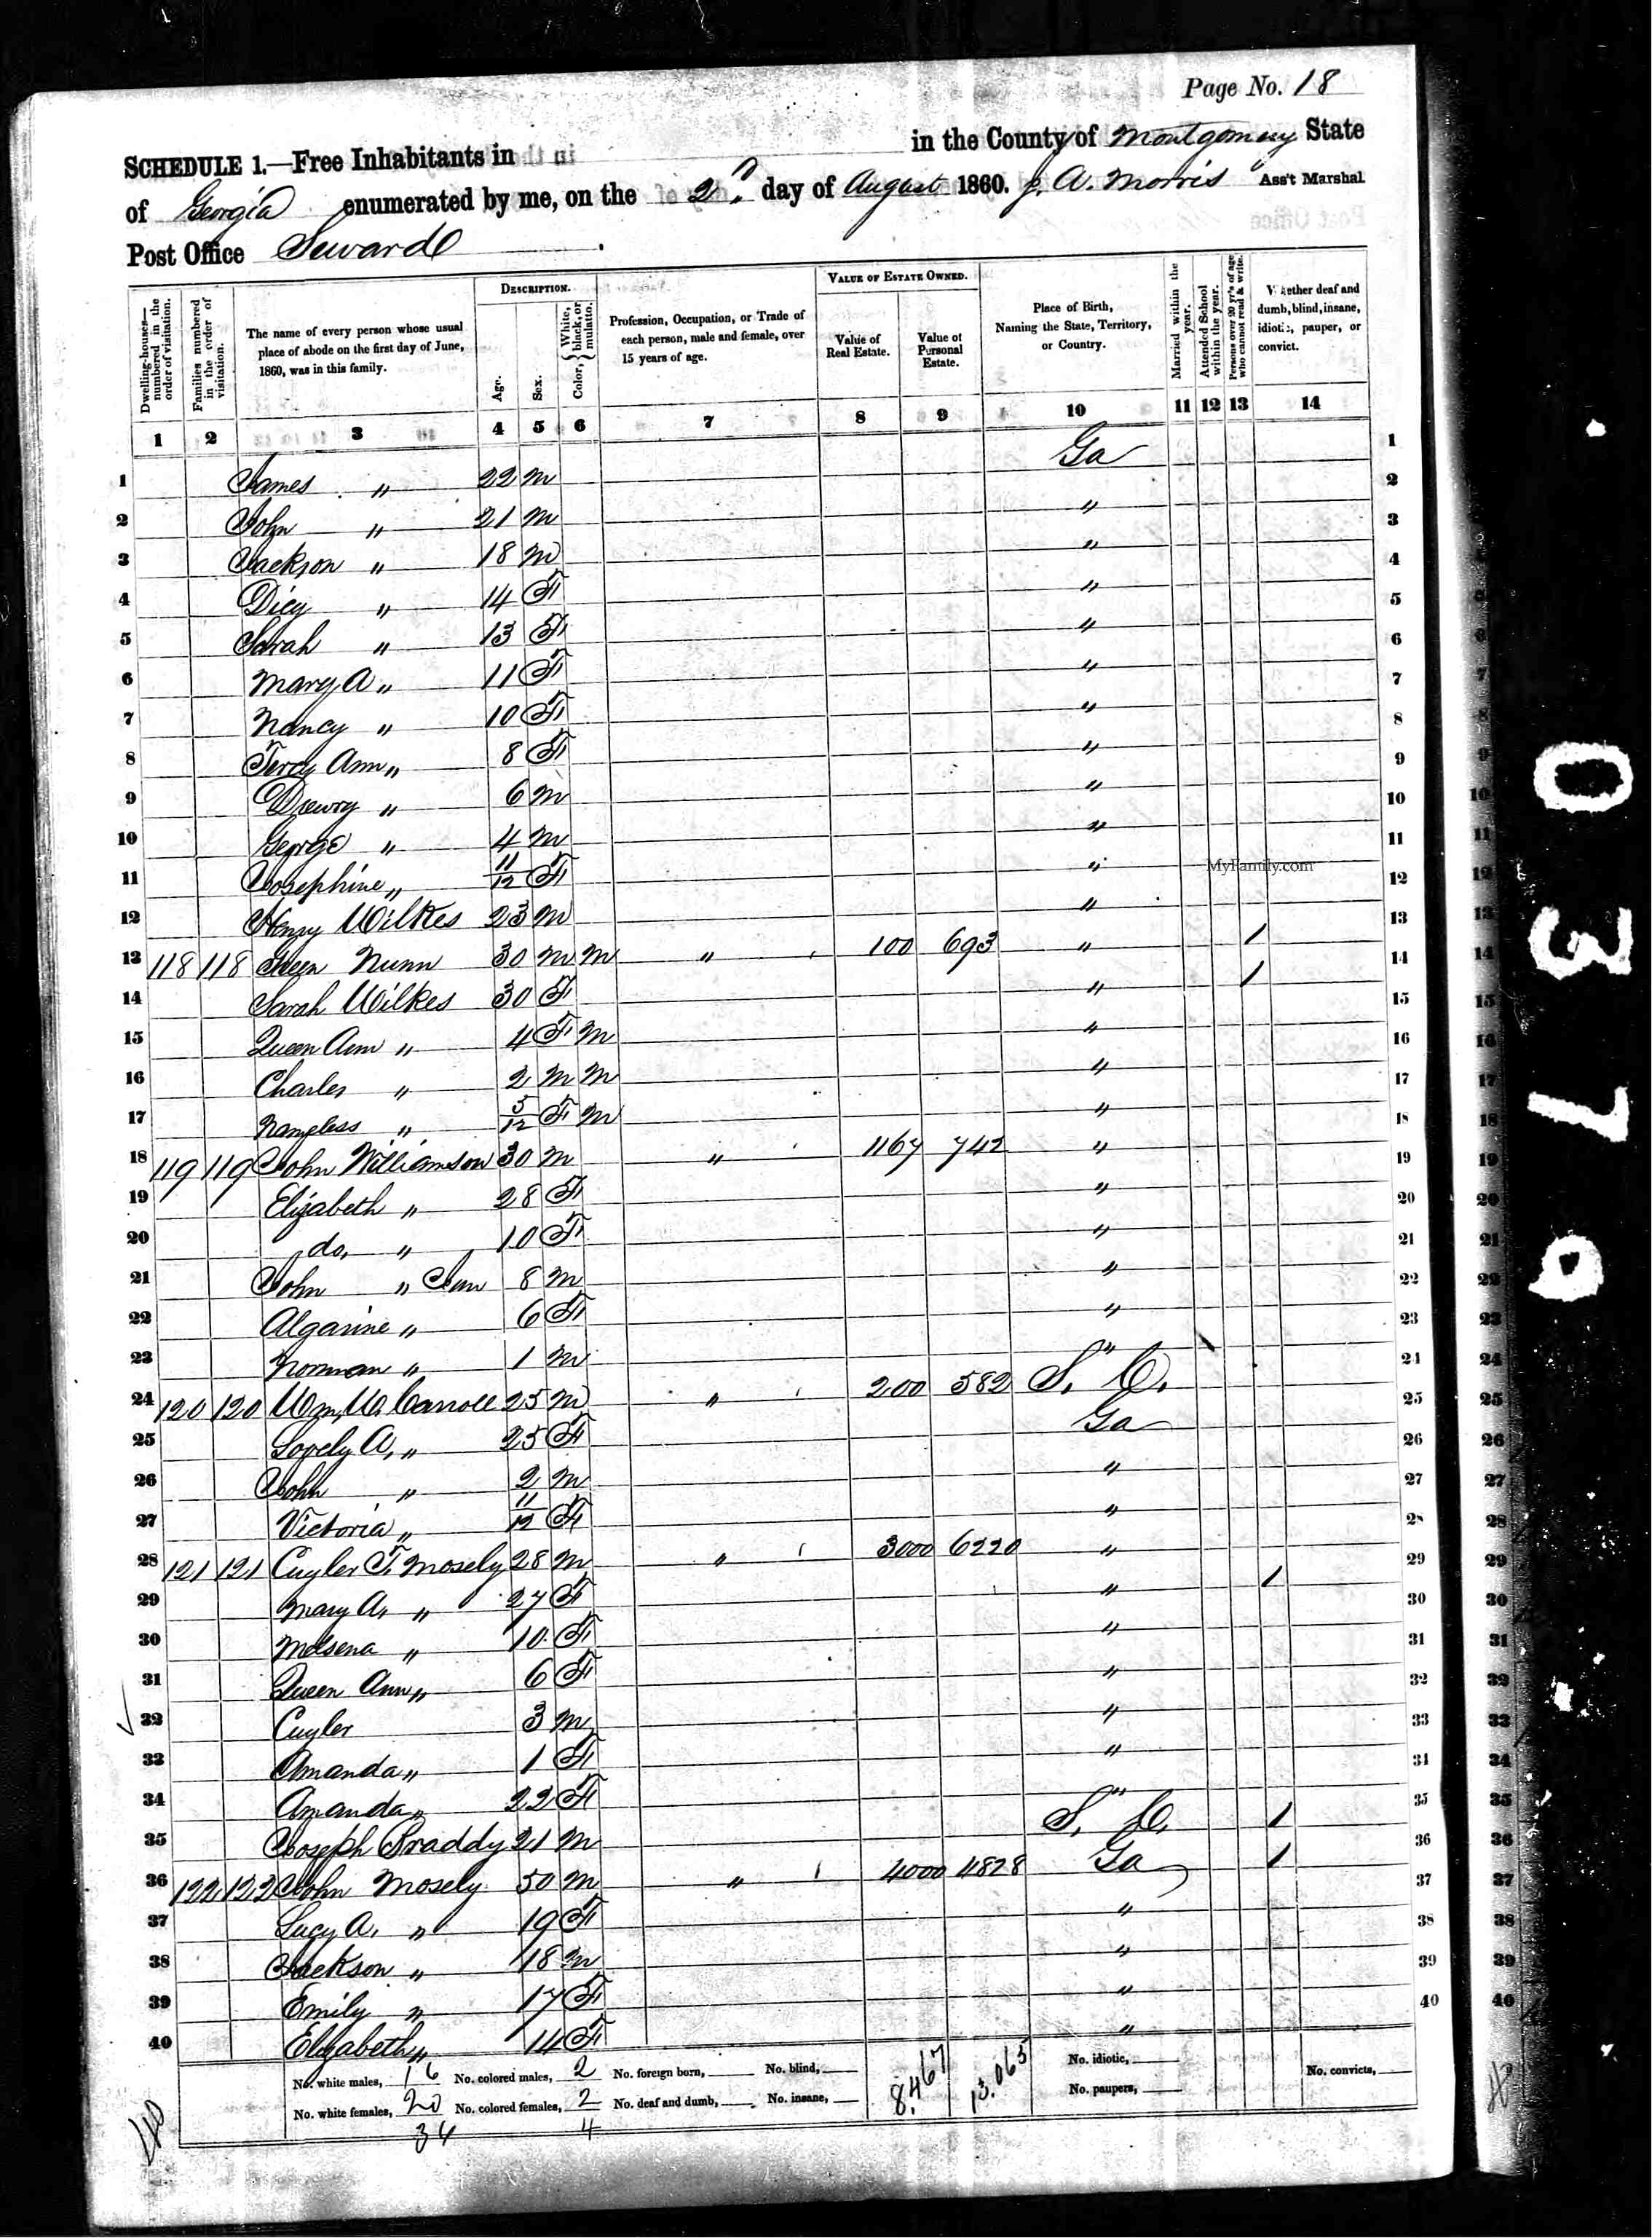 Page No. 18
SCHEDULE 1.—Free Inhabitants in in the County of Montgomery State
of Georgia enumerated by me, on the 2d day of August 1860. J. A. Morris Ass't Marshal
Post Office Seward
Dwelling-houses—numbered in the order of visitation.
Families numbered in the order of visitation.
The name of every person whose usual place of abode on the first day of June, 1860, was in this family.
DESCRIPTION.
Age.
Sex.
Color, { White, black, or mulatto.
Profession, Occupation, or Trade of each person, male and female, over 15 years of age.
VALUE OF ESTATE OWNED.
Value of Real Estate.
Value of Personal Estate.
Place of Birth, Naming the State, Territory, or Country.
Married within the year.
Attended School within the year.
Persons over 20 yr's of age who cannot read & write.
Whether deaf and dumb, blind, insane, idiotic, pauper, or convict.
1 2 3 4 5 6 7 8 9 10 11 12 13 14
1 James " 22 m Ga 1
2 John " 21 m " 2
3 Jackson " 18 m " 3
4 Dicy " 14 F " 4
5 Sarah " 13 F " 5
6 Mary A " 11 F " 6
7 Nancy " 10 F " 7
8 Ann " 8 F " 8
9 Drewry " 6 m " 9
10 George " 4 m " 10
11 Josephine " 11/12 F " 11
12 Henry Wilkes 23 m " 12
13 118 118 Green Nunn 30 m m " 100 693 " / 13
14 Sarah Wilkes 30 F " / 14
15 Queen Ann " 4 F m " 15
16 Charles " 2 m m " 16
17 Nameless " 5/12 F m " 17
18 119 119 John Williamson 30 m " 1167 742 " 18
19 Elizabeth " 28 F " 19
20 do, " 10 F " 20
21 John " Jun 8 m " 21
22 Algarine " 6 F " 22
23 Norman " 1 m " 23
24 120 120 Wm, W. Carroll 25 m " 200 582 S. C. 24
25 Lovely A, " 25 F Ga 25
26 John " 2 m " 26
27 Victoria " 11/12 F " 27
28 121 121 Cuyler T. Mosely 28 m " 3000 6220 " 28
29 Mary A, " 27 F " / 29
30 Melsena " 10 F " 30
31 Queen Ann " 6 F " 31
32 Cuyler 3 m " 32
33 Amanda " 1 F " 33
34 Amanda " 22 F " 34
35 Joseph 21 m S. C. / 35
36 122 122 John Mosely 50 m " 4000 4828 Ga / 36
37 Lucy A, " 19 F " 37
38 Jackson " 18 m " 38
39 Emily " 17 F " 39
40 Elizabeth " 14 F " 40
No. white males, 16 No. colored males, 2 No. foreign born, No. blind, 8,467 13,063 No. idiotic, No. convicts,
No. white females, 20 No. colored females, 2 No. deaf and dumb, No. insane, No. paupers,
36 4
40
MyFamily.com